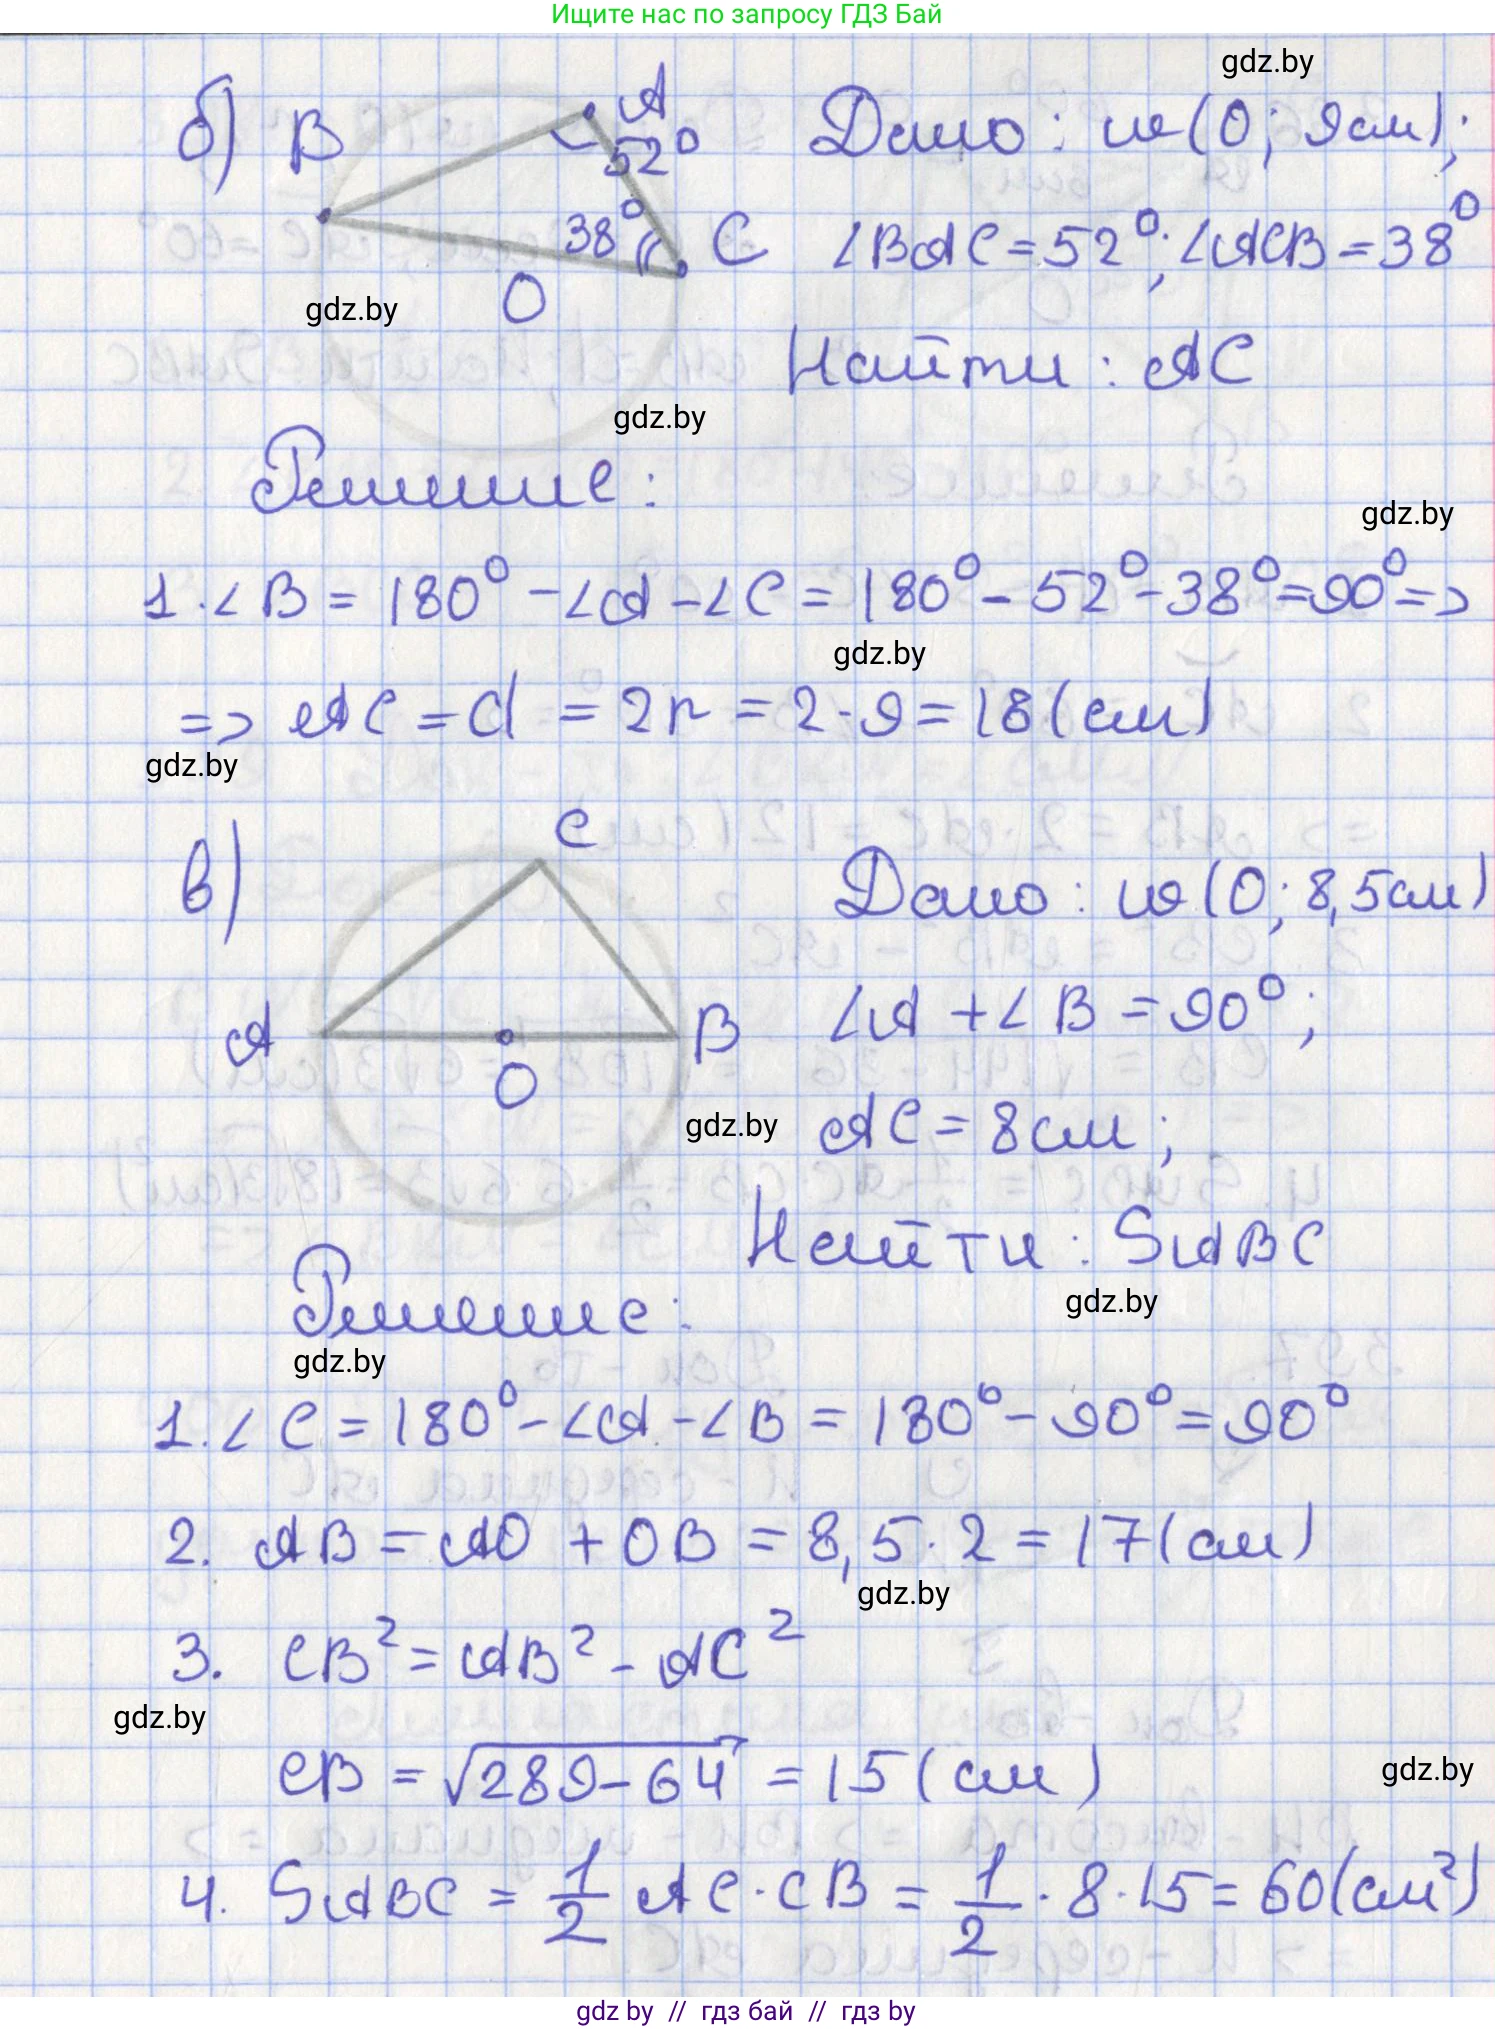 Ищите нас по запросу ГДЗ Бай
gdz.by
б) B A 52° 38° C O
Дано: w(O; 9см);
∠BAC = 52°; ∠ACB = 38°
gdz.by
Найти: AC
gdz.by
Решение:
gdz.by
1. ∠B = 180° - ∠A - ∠C = 180° - 52° - 38° = 90° =>
gdz.by
=> AC = d = 2r = 2 · 9 = 18 (см)
gdz.by
в) C A B O
Дано: w(O; 8,5см)
∠A + ∠B = 90°;
gdz.by
AC = 8см;
Найти: SABC
gdz.by
Решение:
gdz.by
1. ∠C = 180° - ∠A - ∠B = 180° - 90° = 90°
2. AB = AO + OB = 8,5 · 2 = 17 (см)
gdz.by
3. CB² = AB² - AC²
gdz.by
CB = √289 - 64 = 15 (см)
gdz.by
4. SABC = 1/2 AC · CB = 1/2 · 8 · 15 = 60 (см²)
gdz by // гдз бай // гдз by